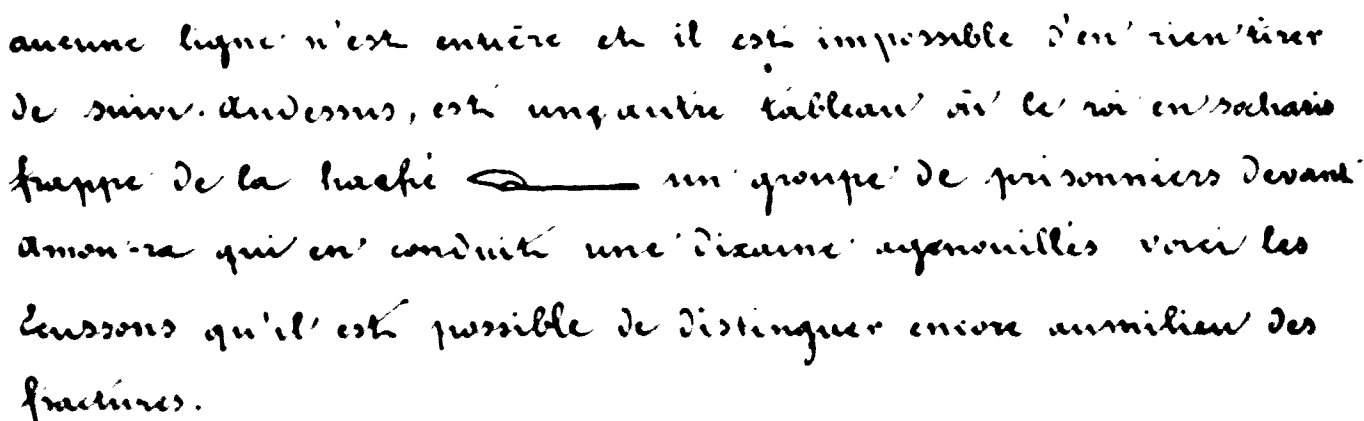 aucune ligne n'est entière et il est impossible d'en rien tirer
de suivi. Audessus, est un autre tableau où le roi en socharis
frappe de la hache un groupe de prisonniers devant
Amon-ra qui en conduit une dixaine agenouillés voici les
Ecussons qu'il est possible de distinguer encore aumilieu des
fractures.